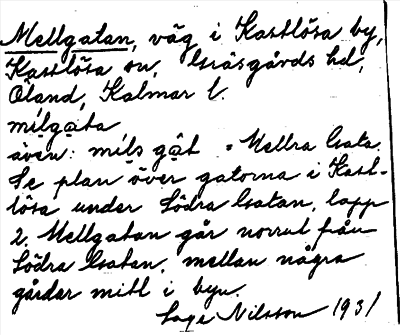 Mellgatan, väg i Kastlösa by,
Kastlösa sn, Gräsgårds hd,
Öland, Kalmar l.
mílgata
även: míls gat = Mellra Gata.
Se plan över gatorna i Kast-
lösa under Södra Gatan, lapp
2. Mellgatan går norrut från
Södra Gatan, mellan några
gårdar mitt i byn.
Nilsson 1931